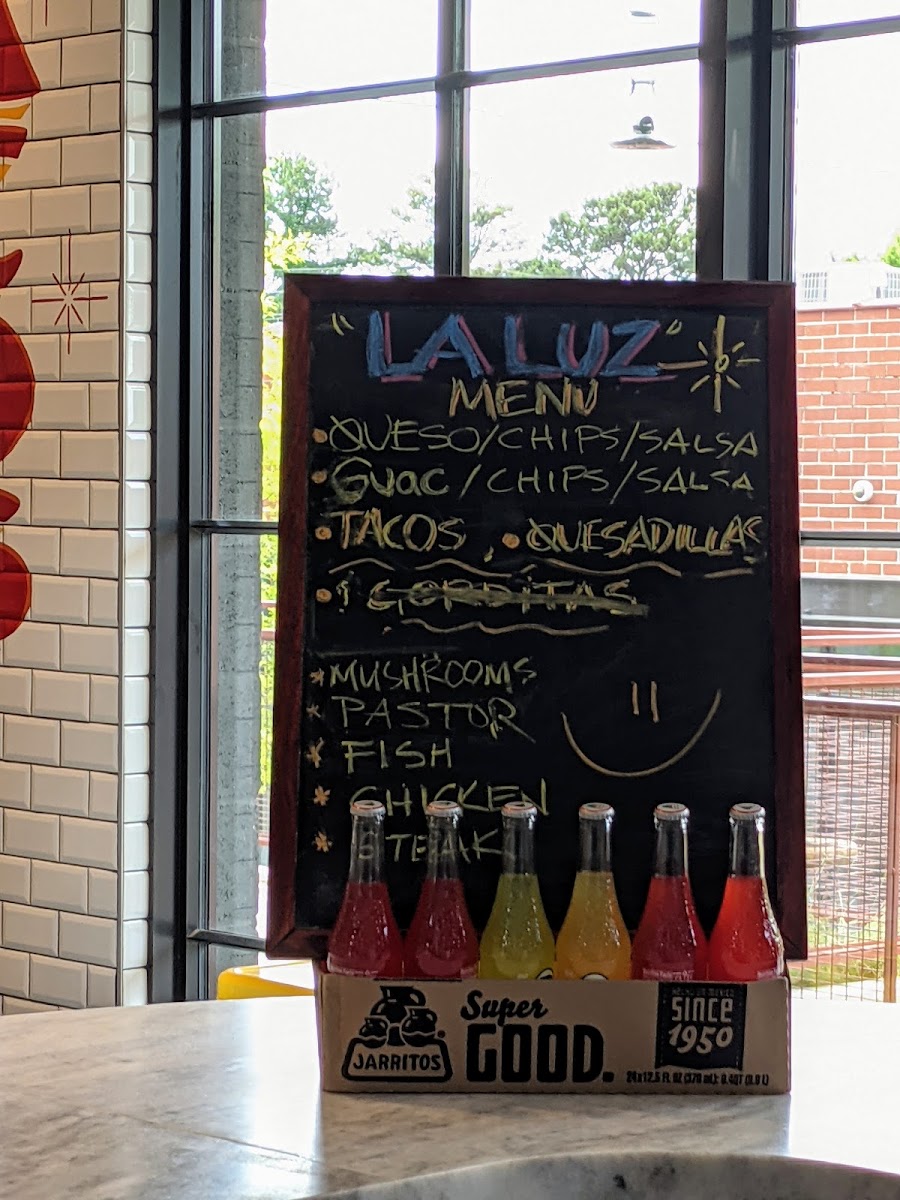 "LA LUZ"
MENU
• QUESO/CHIPS/SALSA
• GUAC/CHIPS/SALSA
• TACOS, • QUESADILLAS
• & GORDITAS
* MUSHROOMS
* PASTOR
* FISH
* CHICKEN
* STEAK
JARRITOS
Super
GOOD.
HECHO EN MEXICO
SINCE
1950
24x12.5 FL OZ (370 mL)